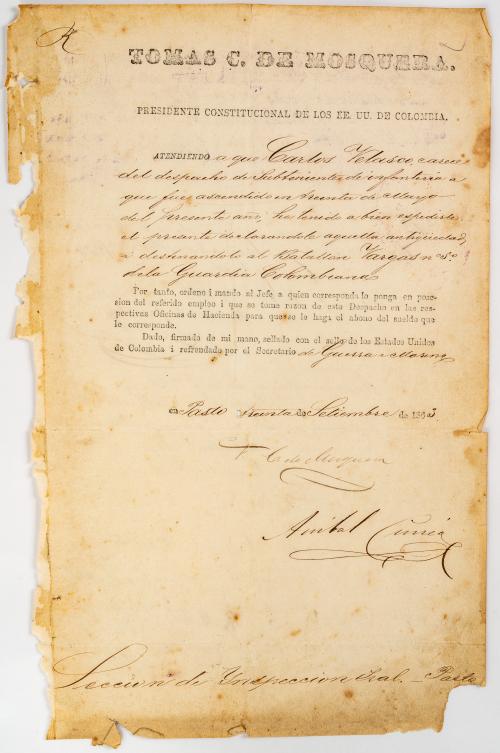 R
TOMAS C. DE MOSQUERA.
PRESIDENTE CONSTITUCIONAL DE LOS EE. UU. DE COLOMBIA.
ATENDIENDO a que Carlos Velasco, carece
del despacho de Subteniente de infanteria a
que fue ascendido en treinta de Mayo
del presente año, ha tenido a bien expedirle
el presente declarandole aquella antigüedad,
i destinandolo al Batallon Vargas nº 5º
de la Guardia Colombiana
Por tanto, ordeno i mando al Jefe, a quien corresponda lo ponga en pose-
sion del referido empleo i que se tome razon de este Despacho en las res-
pectivas Oficinas de Hacienda para que se le haga el abono del sueldo que
le corresponde.
Dado, firmado de mi mano, sellado con el sello de los Estados Unidos
de Colombia i refrendado por el Secretario de Guerra i Marina
en Pasto treinta de Setiembre de 1863.
T C de Mosquera
Anibal
Seccion de Inspeccion Jral. Pasto